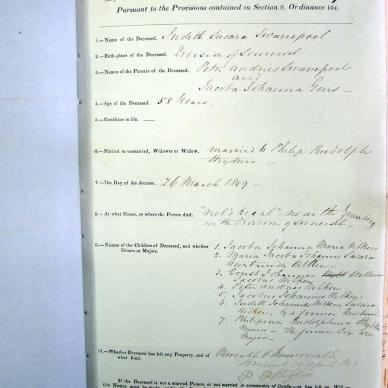 Pursuant to the Provisions contained in Section 9, Ordinance 104.
1.—Name of the Deceased. Judith Susara Swanepoel
2.—Birth-place of the Deceased. Division of Somerset
3.—Names of the Parents of the Deceased. Peter Andries Swanepoel
and
Jacoba Johanna
4.—Age of the Deceased. 58 Years
5.—Condition in life. —
6.—Married or unmarried, Widower or Widow. married to Philip Rudolph
7.—The Day of the decease. 26 March 1849 —
8.—At what House, or where the Person died. "Nel's Kraal" near the
in the Division of Somerset
9.—Names of the Children of Deceased, and whether Minors or Majors.
1. Jacoba Johanna Maria
2. Maria Jacoba Johanna Susara
3. Ernst Johannes
Jacobus
4. Peter Andries
5. Jacobus Johannes
6. Judith Johanna Susara
by a former husband
7. Philipina Rudolphina
Minor — The former six are
Majors —
10.—Whether Deceased has left any Property, and of what kind. Moveable & Immoveable
If the Deceased is not a married Person, or not married in community of Goods,